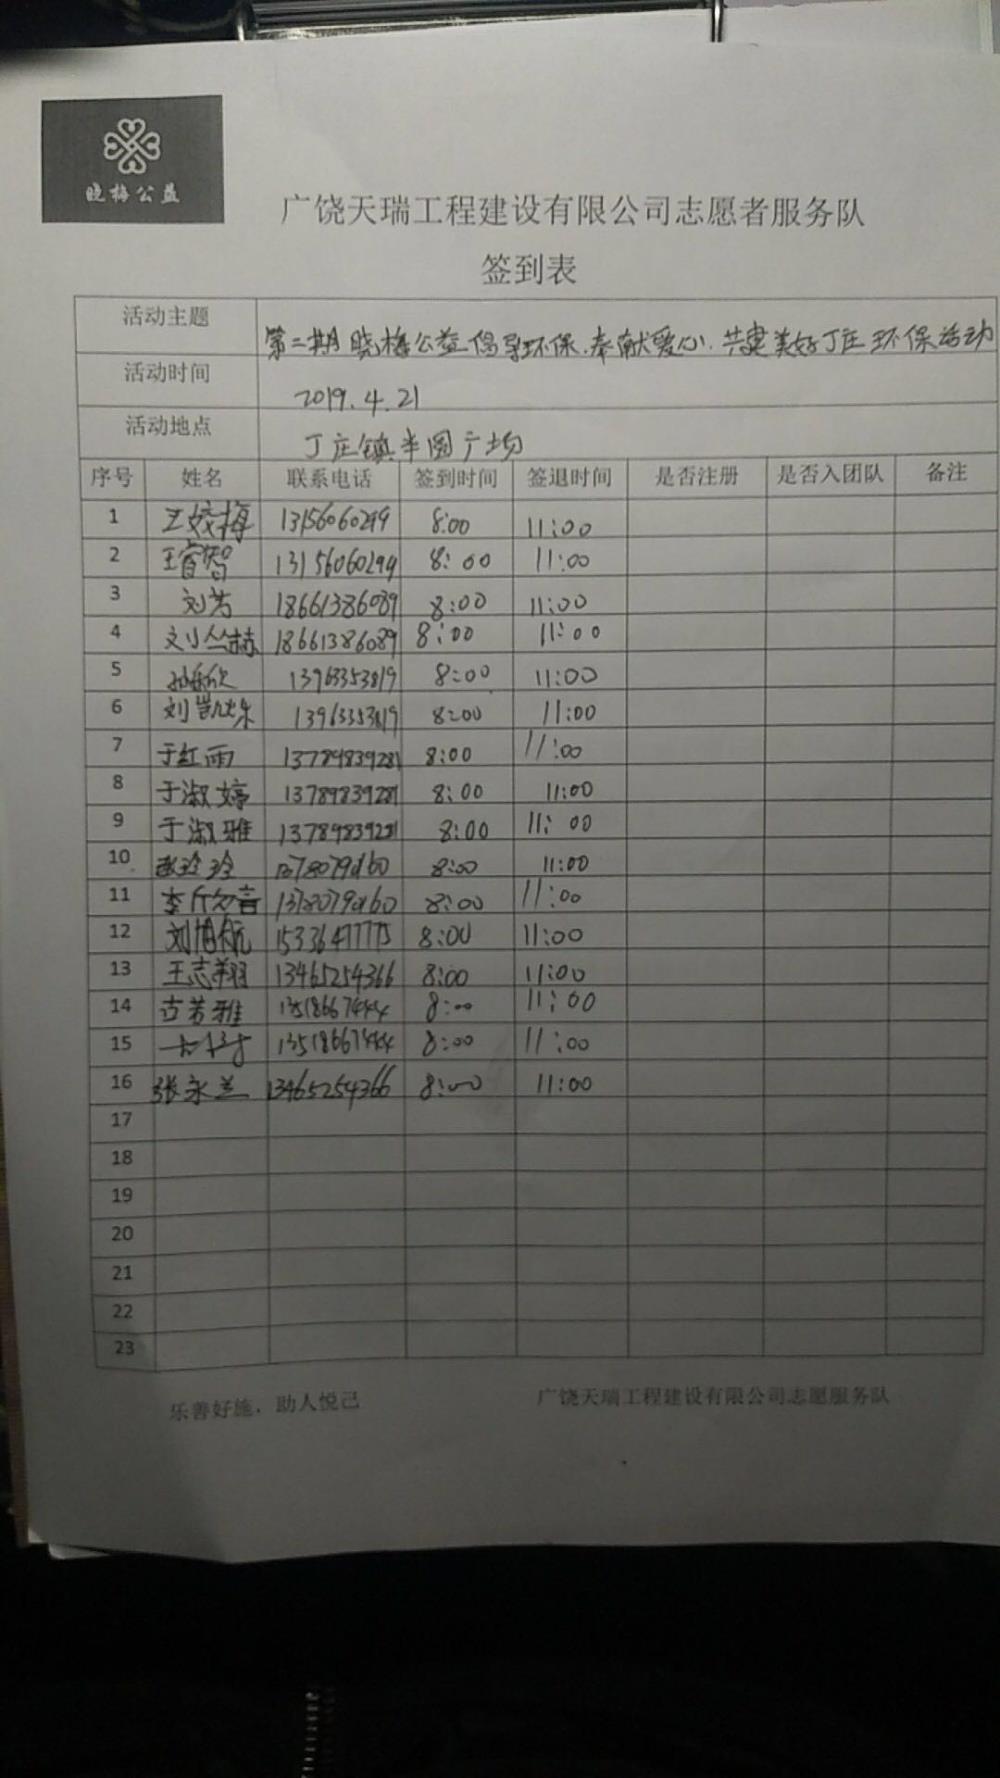 晓梅公益
广饶天瑞工程建设有限公司志愿者服务队
签到表
活动主题 第二期晓梅公益倡导环保.奉献爱心.共建美好丁庄环保活动
活动时间 2019.4.21
活动地点 丁庄镇半圆广场
序号 姓名 联系电话 签到时间 签退时间 是否注册 是否入团队 备注
1 王姣梅 13156060299 8:00 11:00
2 王睿智 13156060299 8:00 11:00
3 刘芳 18661386089 8:00 11:00
4 刘丛赫 18661386089 8:00 11:00
5 13963353819 8:00 11:00
6 刘凯烁 13963353819 8:00 11:00
7 于红雨 13789839281 8:00 11:00
8 于淑婷 13789839281 8:00 11:00
9 于淑雅 13789839281 8:00 11:00
10 玲玲 8:00 11:00
11 李 8:00 11:00
12 刘旭航 15336477775 8:00 11:00
13 王志翔 13465254366 8:00 11:00
14 古芳雅 13518667444 8:00 11:00
15 13518667444 8:00 11:00
16 张永兰 13465254366 8:00 11:00
17
18
19
20
21
22
23
乐善好施，助人悦己 广饶天瑞工程建设有限公司志愿服务队